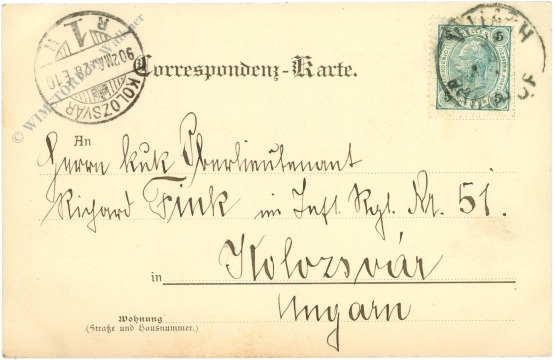 Correspondenz-Karte.
KOLOZSVÁR
VILLACH
5 5
An
Herrn kuk Oberlieutenant
Richard Fink im Inft. Rgt. Nr. 51.
in Kolozsvár
Ungarn
Wohnung
(Straße und Hausnummer.)